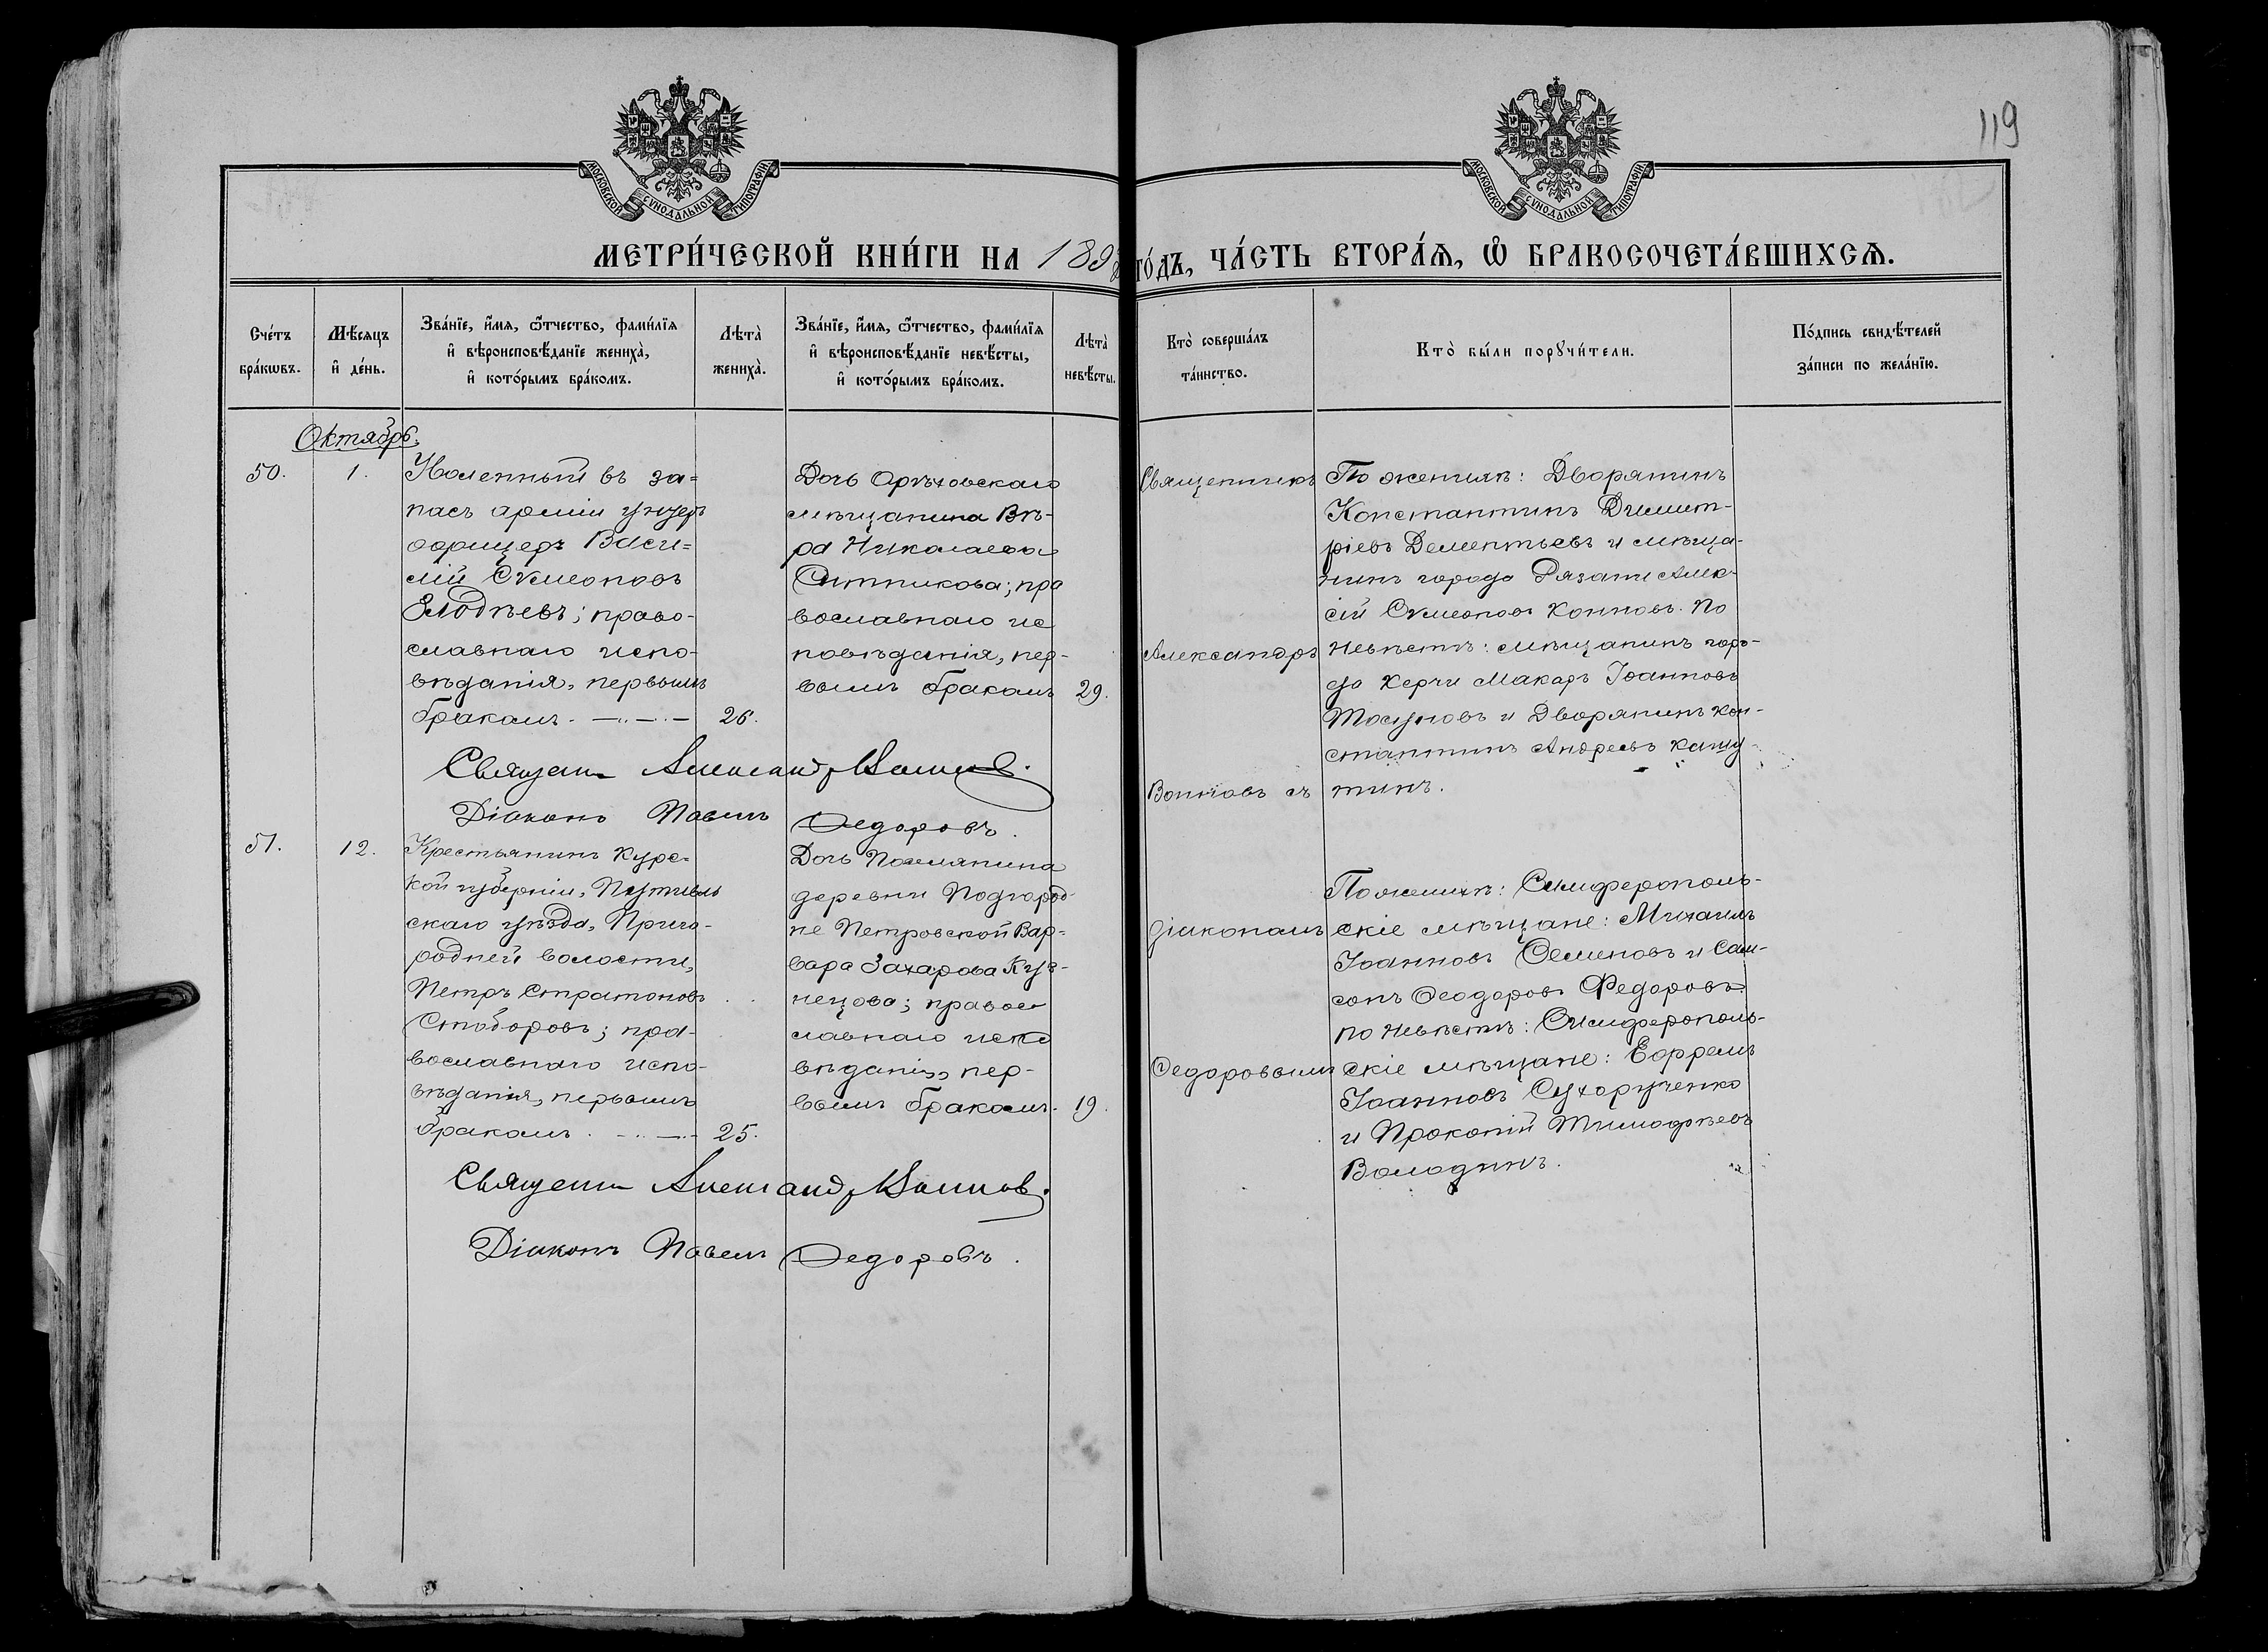 119
МОСКОВСКОЙ СѴНОДАЛЬНОЙ ТИПОГРАФІИ
МОСКОВСКОЙ СѴНОДАЛЬНОЙ ТИПОГРАФІИ
МЕТРИ́ЧЕСКОЙ КНИ́ГИ НА 189 ГО́ДЪ, ЧА́СТЬ ВТОРА́Ѧ, Ѡ БРАКОСОЧЕТА́ВШИХСѦ.
Сче́тъ бра́кѡвъ.
Мѣ́сяцъ и҆ де́нь.
Зва́нїе, и҆́мя, ѻ҆́тчество, фами́лїя и҆ вѣроисповѣ́данїе жениха̀, и҆ кото́рымъ бра́комъ.
Лѣта̀ жениха̀.
Зва́нїе, и҆́мя, ѻ҆́тчество, фами́лїя и҆ вѣроисповѣ́данїе невѣ́сты, и҆ кото́рымъ бра́комъ.
Лѣта̀ невѣ́сты.
Кто̀ соверша́лъ та́инство.
Кто̀ бы́ли порꙋчи́тели.
По́дпись свидѣ́телей за́писи по жела́нїю.
Октябрь.
50.
1.
Уволенный въ за=
пасъ арміи унтеръ
офицеръ Васи=
лій Сѵмеоновъ
право-
славнаго испо-
вѣданія, первымъ
бракомъ.
26.
Дочь Орѣховскаго
мѣщанина Вѣ-
ра Николаева
Ситникова; пра
вославнаго ис
повѣданія, пер-
вымъ бракомъ
29.
Священникъ
Александръ
Войновъ съ
По женихѣ: Дворянинъ
Константинъ Димит-
ріевъ Дементьевъ и мѣща-
нинъ города Рязани Алек-
сій Сѵмеоновъ Конновъ. По
невѣстѣ: мѣщанинъ горо-
да Керчи Макаръ Іоанновъ
и Дворянинъ Кон-
стантинъ Андреевъ Кашу-
тинъ.
Священ. Александръ Войновъ.
Діаконъ Павелъ Ѳедоровъ.
51.
12.
Крестьянинъ Курс=
кой губерніи, Путивль
скаго уѣзда, Приго-
родней волости,
Петръ Стратоновъ
право-
вославнаго испо-
вѣданія, первымъ
бракомъ.
25.
Дочь Поселянина
деревни Подгород-
не Петровской Вар=
вара Захарова Куз-
нецова; правос
лавнаго испо
вѣданія, пер-
вымъ бракомъ.
19.
діакономъ
Ѳедоровымъ
По женихѣ: Симферополь-
скіе мѣщане: Михаилъ
Іоанновъ Семеновъ и Сам-
сонъ Ѳеодоровъ Федоровъ.
по невѣстѣ: Симферополь-
скіе мѣщане: Ефремъ
Іоанновъ Сухорученко
и Прокопій Тимофѣевъ
Володинъ.
Священ. Александръ Войновъ.
Діаконъ Павелъ Ѳедоровъ.